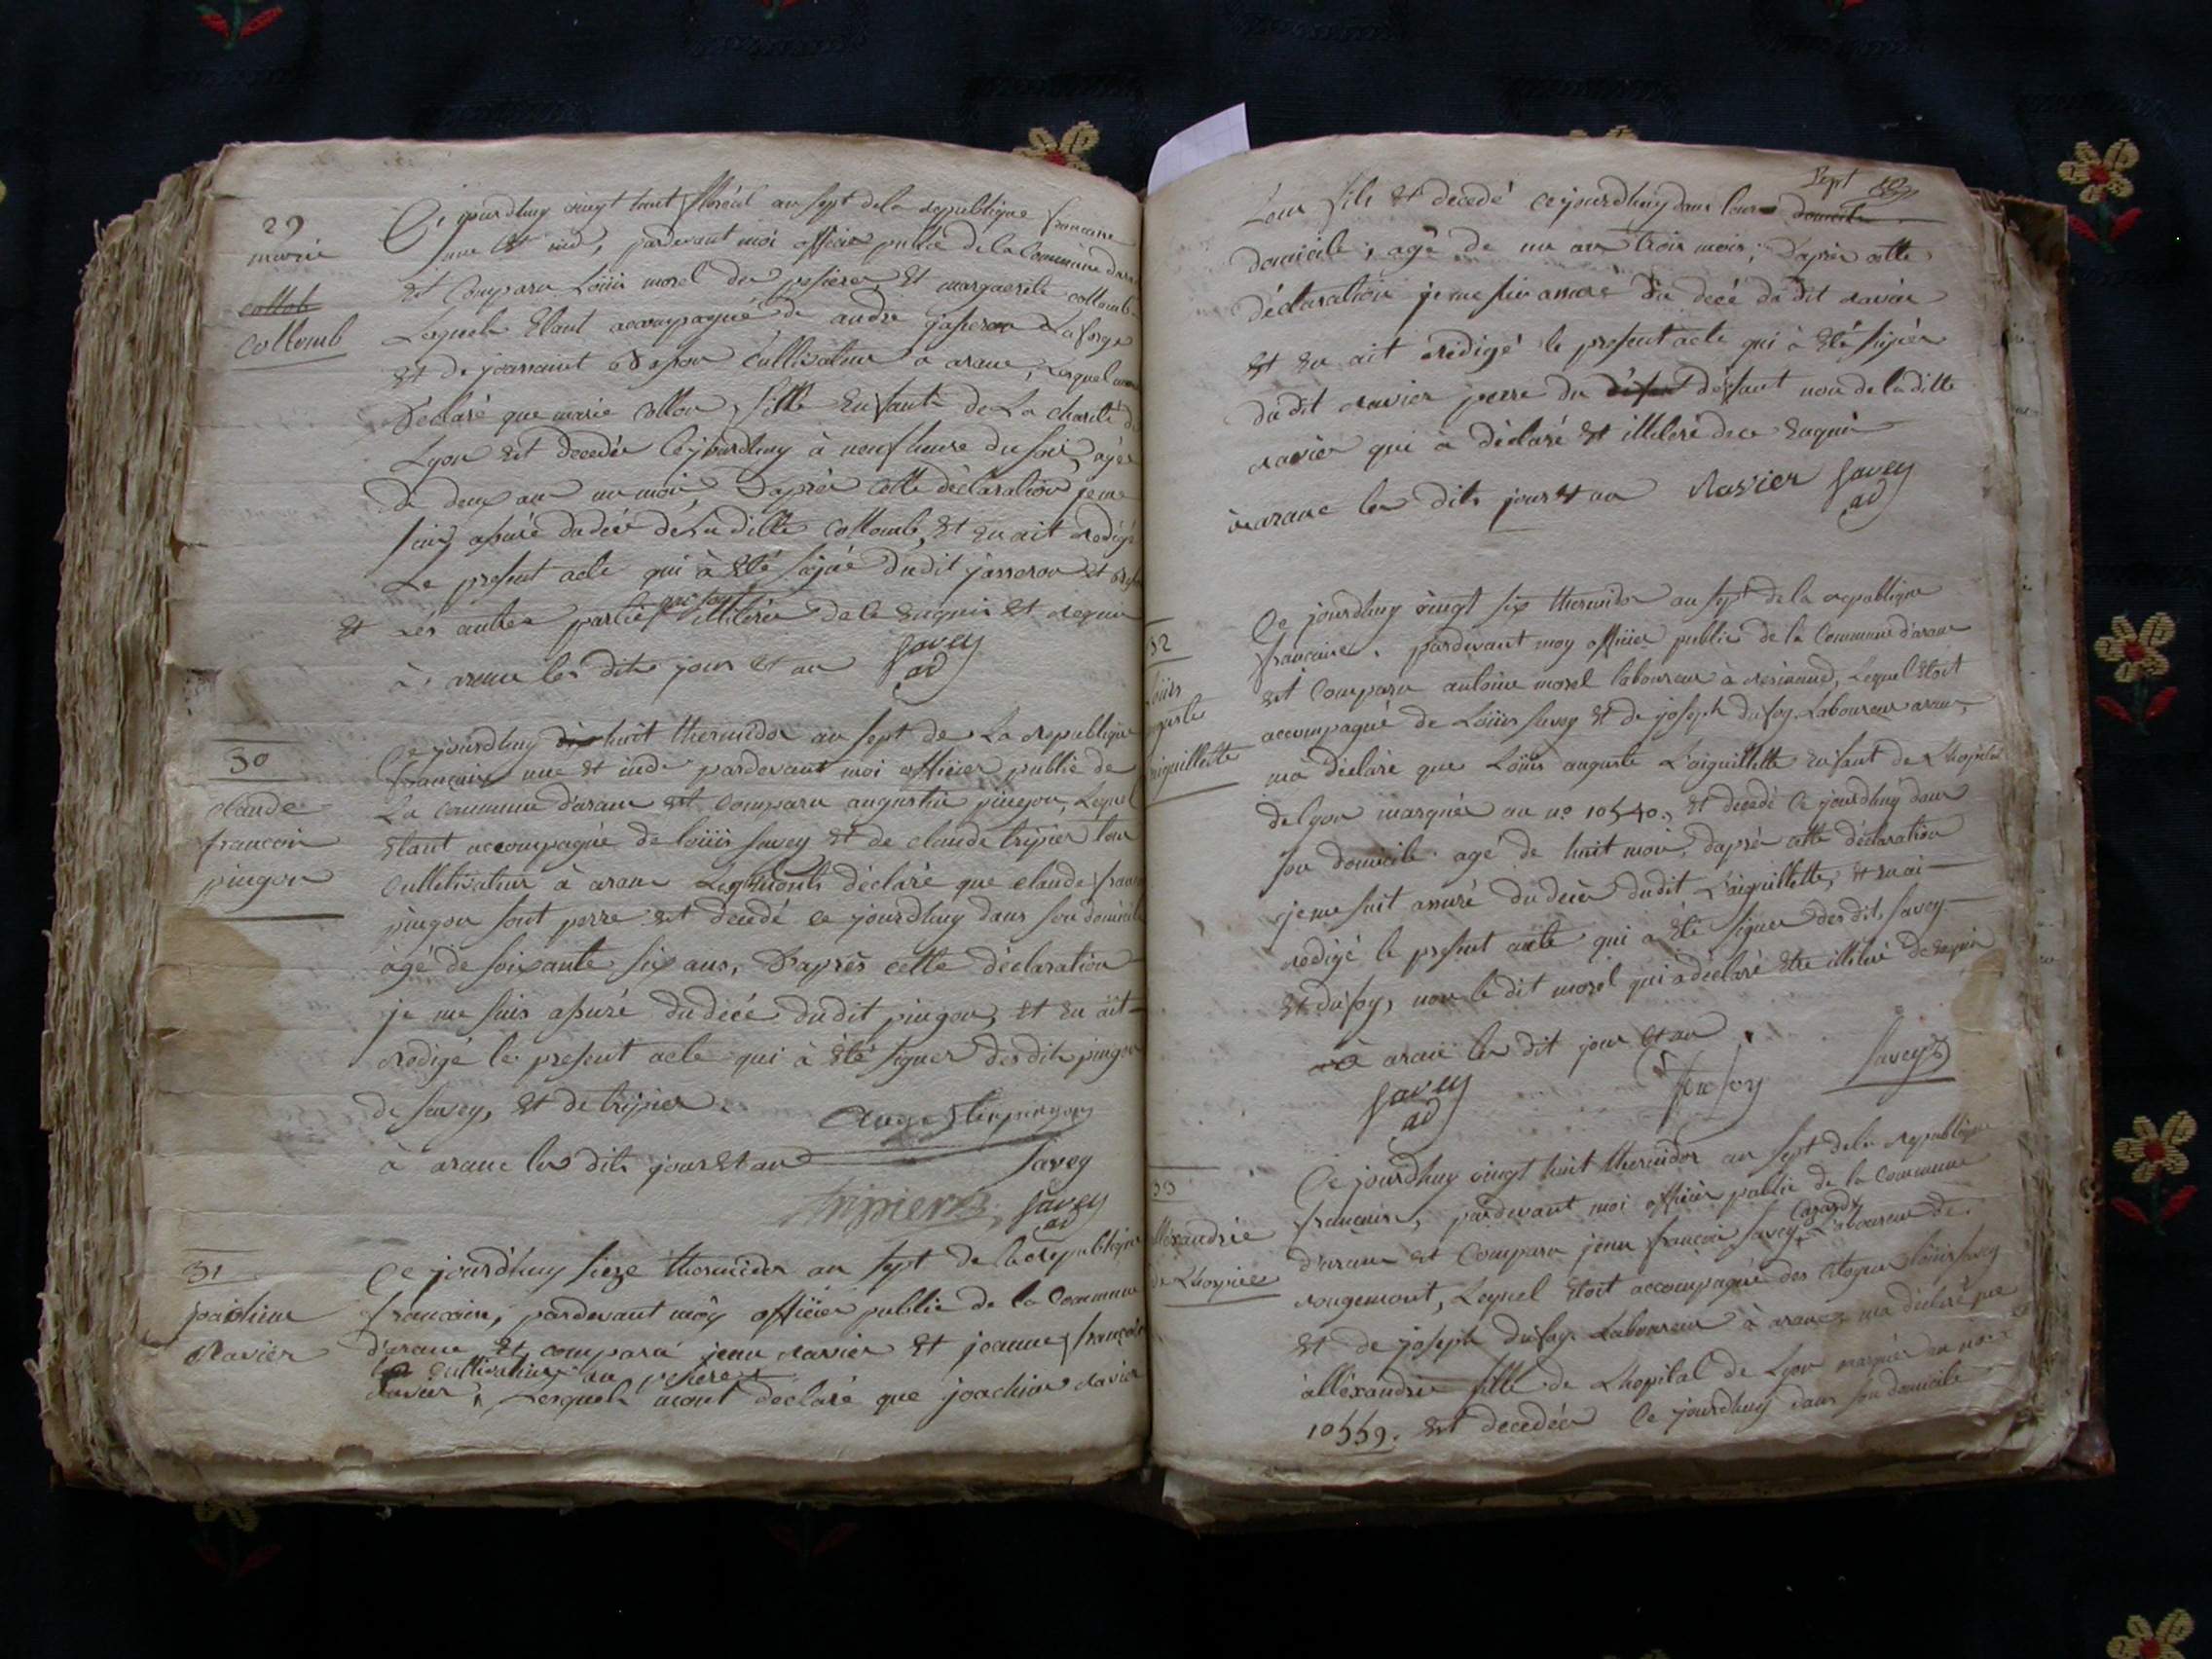 29
marie
collob
Collomb
Ce jourdhuy vingt huit floréal an sept dela republique francaise
une et ind, pardevant moi officier public de la Commune daran
est Comparu Loüis morel de pesieres et margueritte collomb
Lesquels Etant accompagné de andré jasseron Laforge
et de joanaint cultivateur a aranc, Lesquel
Declaré que marie collon fille Enfant de La charité de
Lyon est decedée Cejourdhuy à neuf heure du soir, agée
de deux an un moi, D'apres cette déclaration je me
suis assuré du decé de La ditte collomb, et en ait redigé
Le present acte qui à Eté signé dudit jasseron et
et Les autres parties illiteré de ce Enquis et requis
à aranc les dits jour et an
savey
ad
30
claude
francois
pingon
Ce jourdhuy dix huit thermidor an sept de La republique
francaise une et ind. pardevant moi officier public de
La commune d'aranc est Comparu augustin pingon, Lequel
Etant accompagné de loüis savey et de claude tripier tou
Cultivateur à aranc Lesquels mont déclaré que claude fran
pingon sont perre est decedé ce jourdhuy dans son domicile
agé de soixante six ans, D'aprés cette déclaration
je me suis assuré du décé dudit pingon, et en ait
redigé le present acte qui à Eté signer desdits pingon
de savey, et de tripier.
à aranc les dits jour et an
Augustin pingon
Savey
tripier
savey
ad
31
joachim
Ravier
Ce jourd'huy sieze thermidor an sept de la republique
francaise, pardevant moy officier public de la Commune
d'aranc est comparu jean ravier et jeanne francoise
cultivateur au pesieres
ravier, Lesquels mont declaré que joachim ravier
Sept
Leur fils est decedé cejourdhuy dans leur domicile
domicile, agé de un an trois mois, D'après cette
déclaration je me suis assuré du decé du dit ravier
et en ait redigé le present acte qui à Eté signée
du dit ravier perre du défunt non de laditte
ravier qui a déclaré et illiteré de ce Enquis
à aranc les dits jour et an Ravier savey
ad
32
Loüis
auguste
aiguillette
Ce jourdhuy vingt six thermidor an sept de la republique
francaise, pardevant moy officier public de la Commune d'aranc
est Comparu antoine morel laboureur à resinand, Lequel Etoit
accompagné de Loüis Savey et de joseph dufoy Laboureur aranc,
ma déclaré que Loüis auguste L'aiguillette enfant de Lhopital
de lyon marquée au no 10540, et decedé Ce jourdhuy dans
son domicile agé de huit mois, daprés cette déclaration
je me suit assuré du decée dudit L'aiguillette, et en ai
redigé le present acte qui a Eté signer desdit, savey
et dufoy, non le dit morel qui à déclaré Etre illiteré de Enquis
à aranc les dit jour et an
savey
ad
dufoy
Savey
33
alléxandrie
de Lhospice
Ce jourdhuy vingt huit thermidor an sept dela republique
francaise, pardevant moi officier public de la Commune
d'aranc est Comparu jean francois savey Laboureur de
rougemont, Lequel Etoit accompagné des citoyen loüis savey
et de joseph dufoy. Laboureur à aranc, ma déclaré que
alléxandrie fille de Lhopital de Lyon marquée au no
10559. est decedée Ce jourdhuy dans son domicile